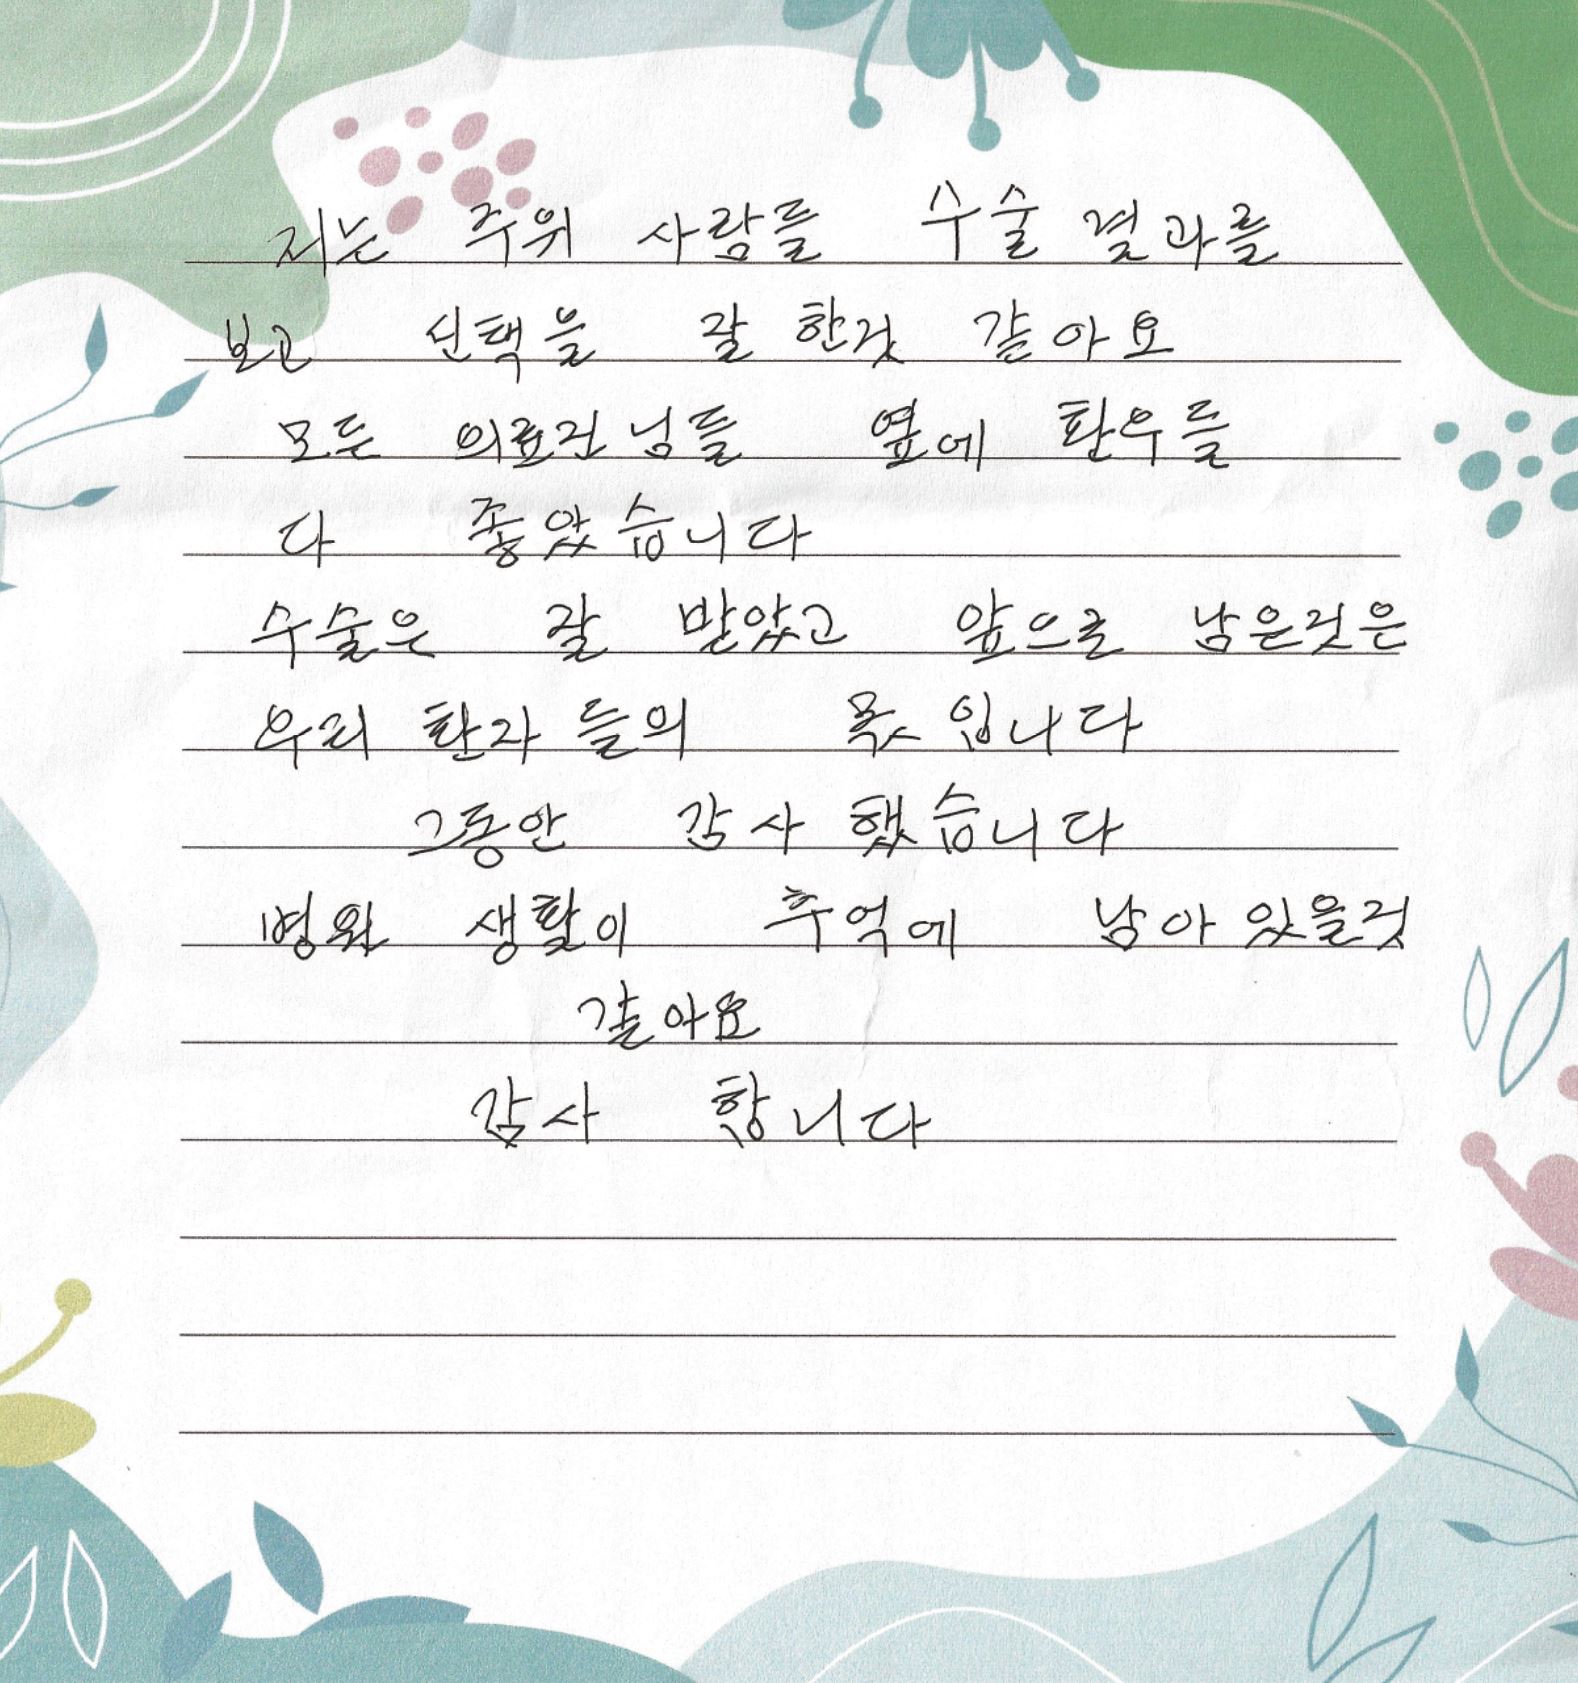 저는 주위 사람들 수술 결과를
보고 선택을 잘 한것 같아요
모든 의료진님들 옆에 환우들
다 좋았습니다
수술은 잘 받았고 앞으로 남은것은
우리 환자들의 몫입니다
그동안 감사했습니다
병원 생활이 추억에 남아있을것
같아요
감사 합니다